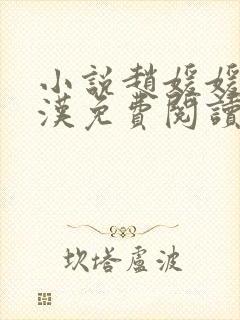 小說趙媛媛
漢免費閱讀
坎塔盧波